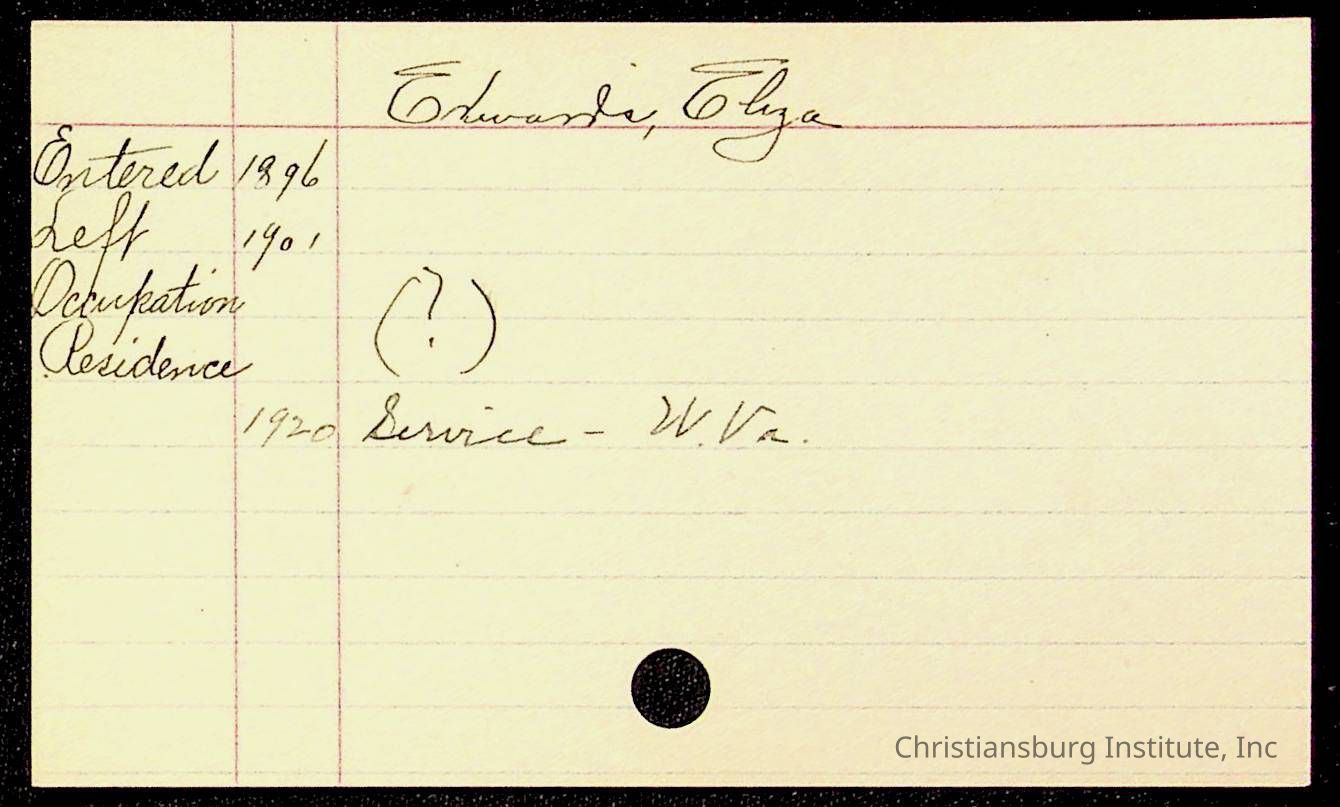 Edwards, Eliza
Entered 1896
Left 1901
Occupation (?)
Residence
1920 Service - W. Va.
Christiansburg Institute, Inc